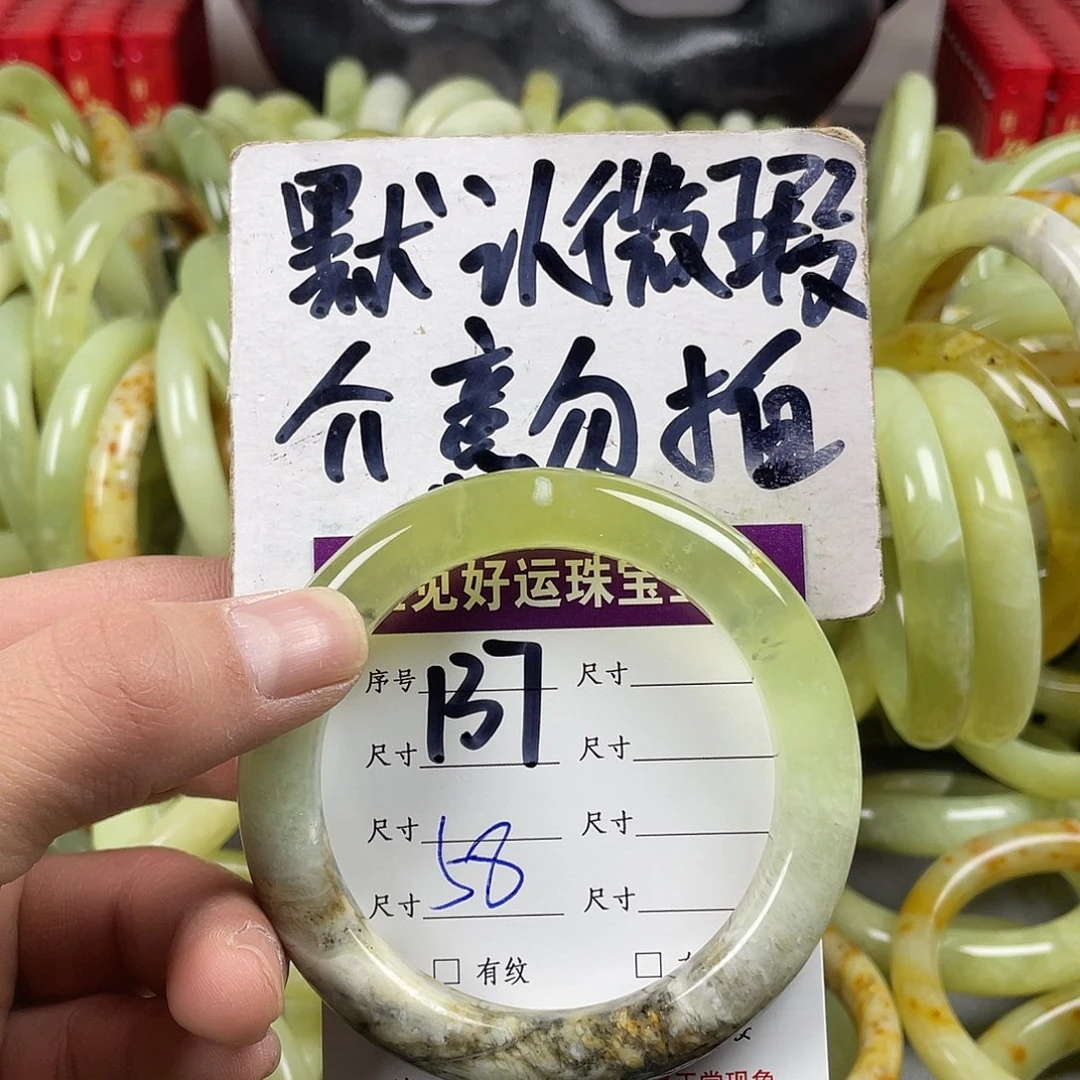 默认微瑕
介意勿拍
见好运珠宝
序号 137 尺寸
尺寸 尺寸
尺寸 58 尺寸
尺寸 尺寸
□ 有纹 □
正常现象